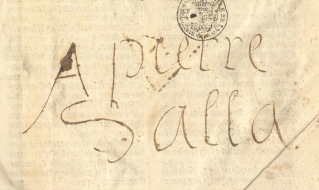 A pierre
Salla